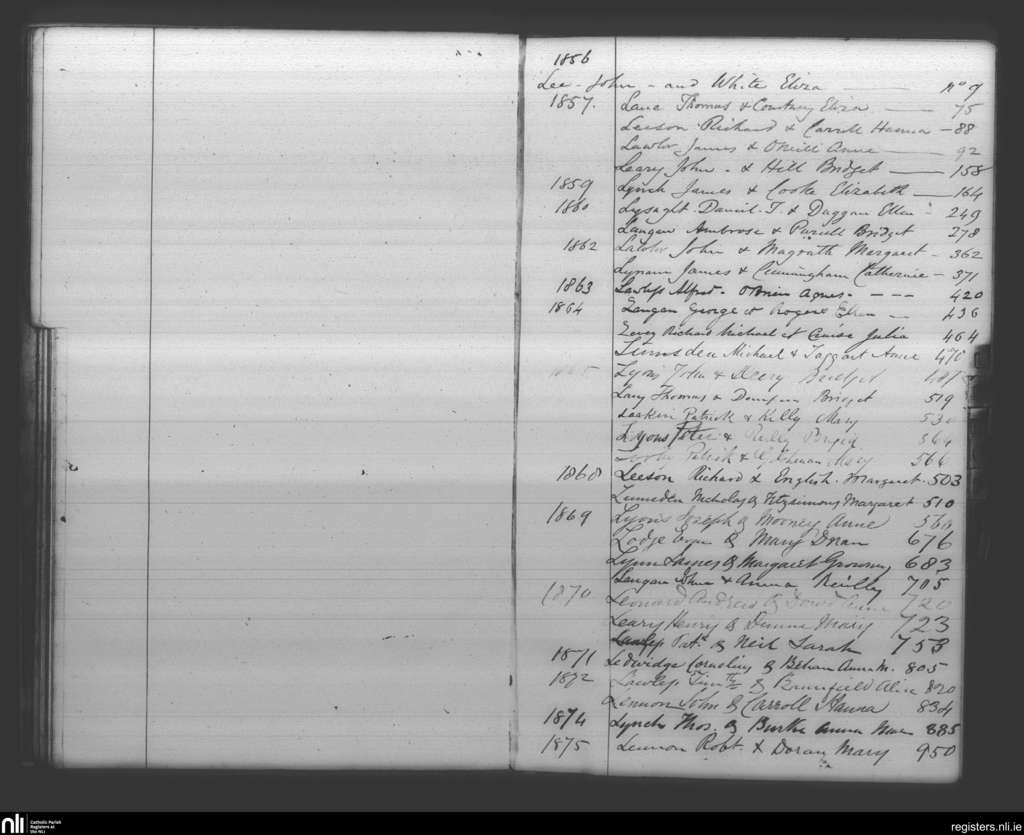 1856
Lee - John - and White Eliza No 9
1857. Lane Thomas & Courtney Eliza 75
Leeson Richard & Carroll Hanna - 88
Lawlor James & O'Neill Anne 92
Leary John - & Hill Bridget 158
1859 Lynch James & Cooke Elizabeth 164
1860 Lysaght Daniel T. & Duggan Ellen 249
Langan Ambrose & Purcell Bridget 278
1862 Lawlor John & Magrath Margaret - 362
Lynam James & Cunningham Catherine - 371
1863 Lawless Alfred - O'Brien Agnes - 420
1864 Langan George et Rogers Ellen 436
Richard Michael et Julia 464
Lumsden Michael & Taggart Anne
Lyons John & Bridget
Lacy Thomas & Bridget 519
Patrick & Kelly Mary 530
Lyons Peter & Reilly
Patrick & Mary 564
1868 Leeson Richard & English Margaret. 503
Lumsden Nicholas & Fitzsimons Margaret 510
1869 Lyons Joseph & Mooney Anne 560
Lodge & Mary 676
Lynn James & Margaret Growney 683
Langan John & Anna Reilly 705
1870 Leonard Andrew & Dowd Anne 720
Leary Henry & Mary 723
Lawless Patk & Neil Sarah 753
1871 Ledwidge Cornelius & Anna M. 805
1872 Lawless Timth & Alice 820
Lennon John & Carroll Hanna 834
1874 Lynch Thos. & Burke Anna 885
1875 Lennon Robt & Doran Mary 950
nli
Catholic Parish
Registers at
the NLI
registers.nli.ie